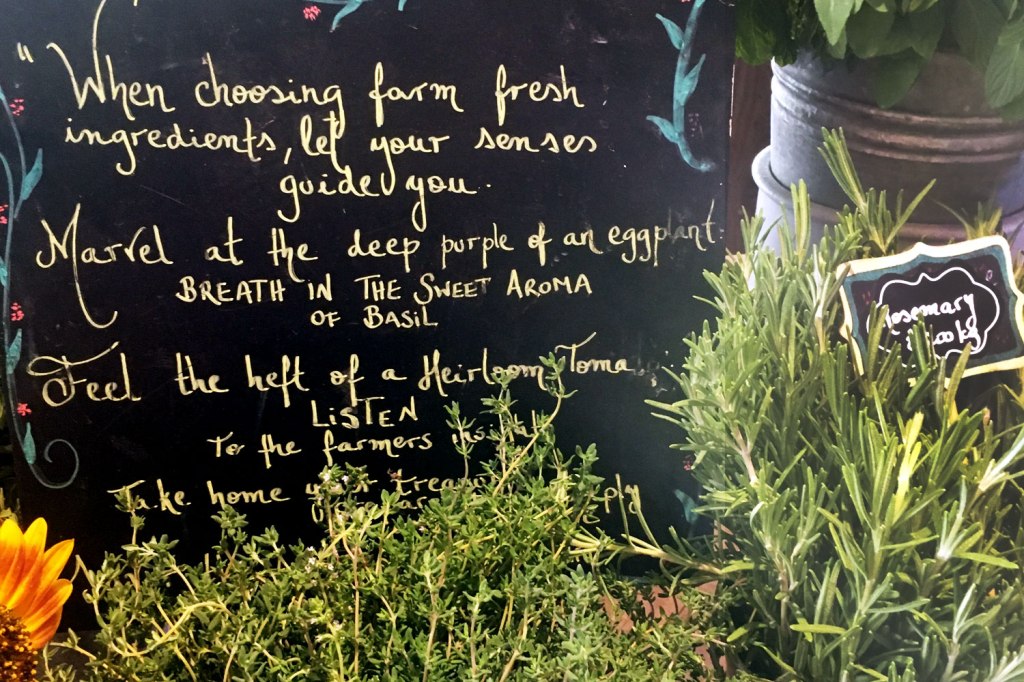 "When choosing farm fresh
ingredients, let your senses
guide you.
Marvel at the deep purple of an eggplant
BREATH IN THE SWEET AROMA
OF BASIL
Feel the heft of a Heirloom Toma
LISTEN
To the farmers
Take home your
Rosemary